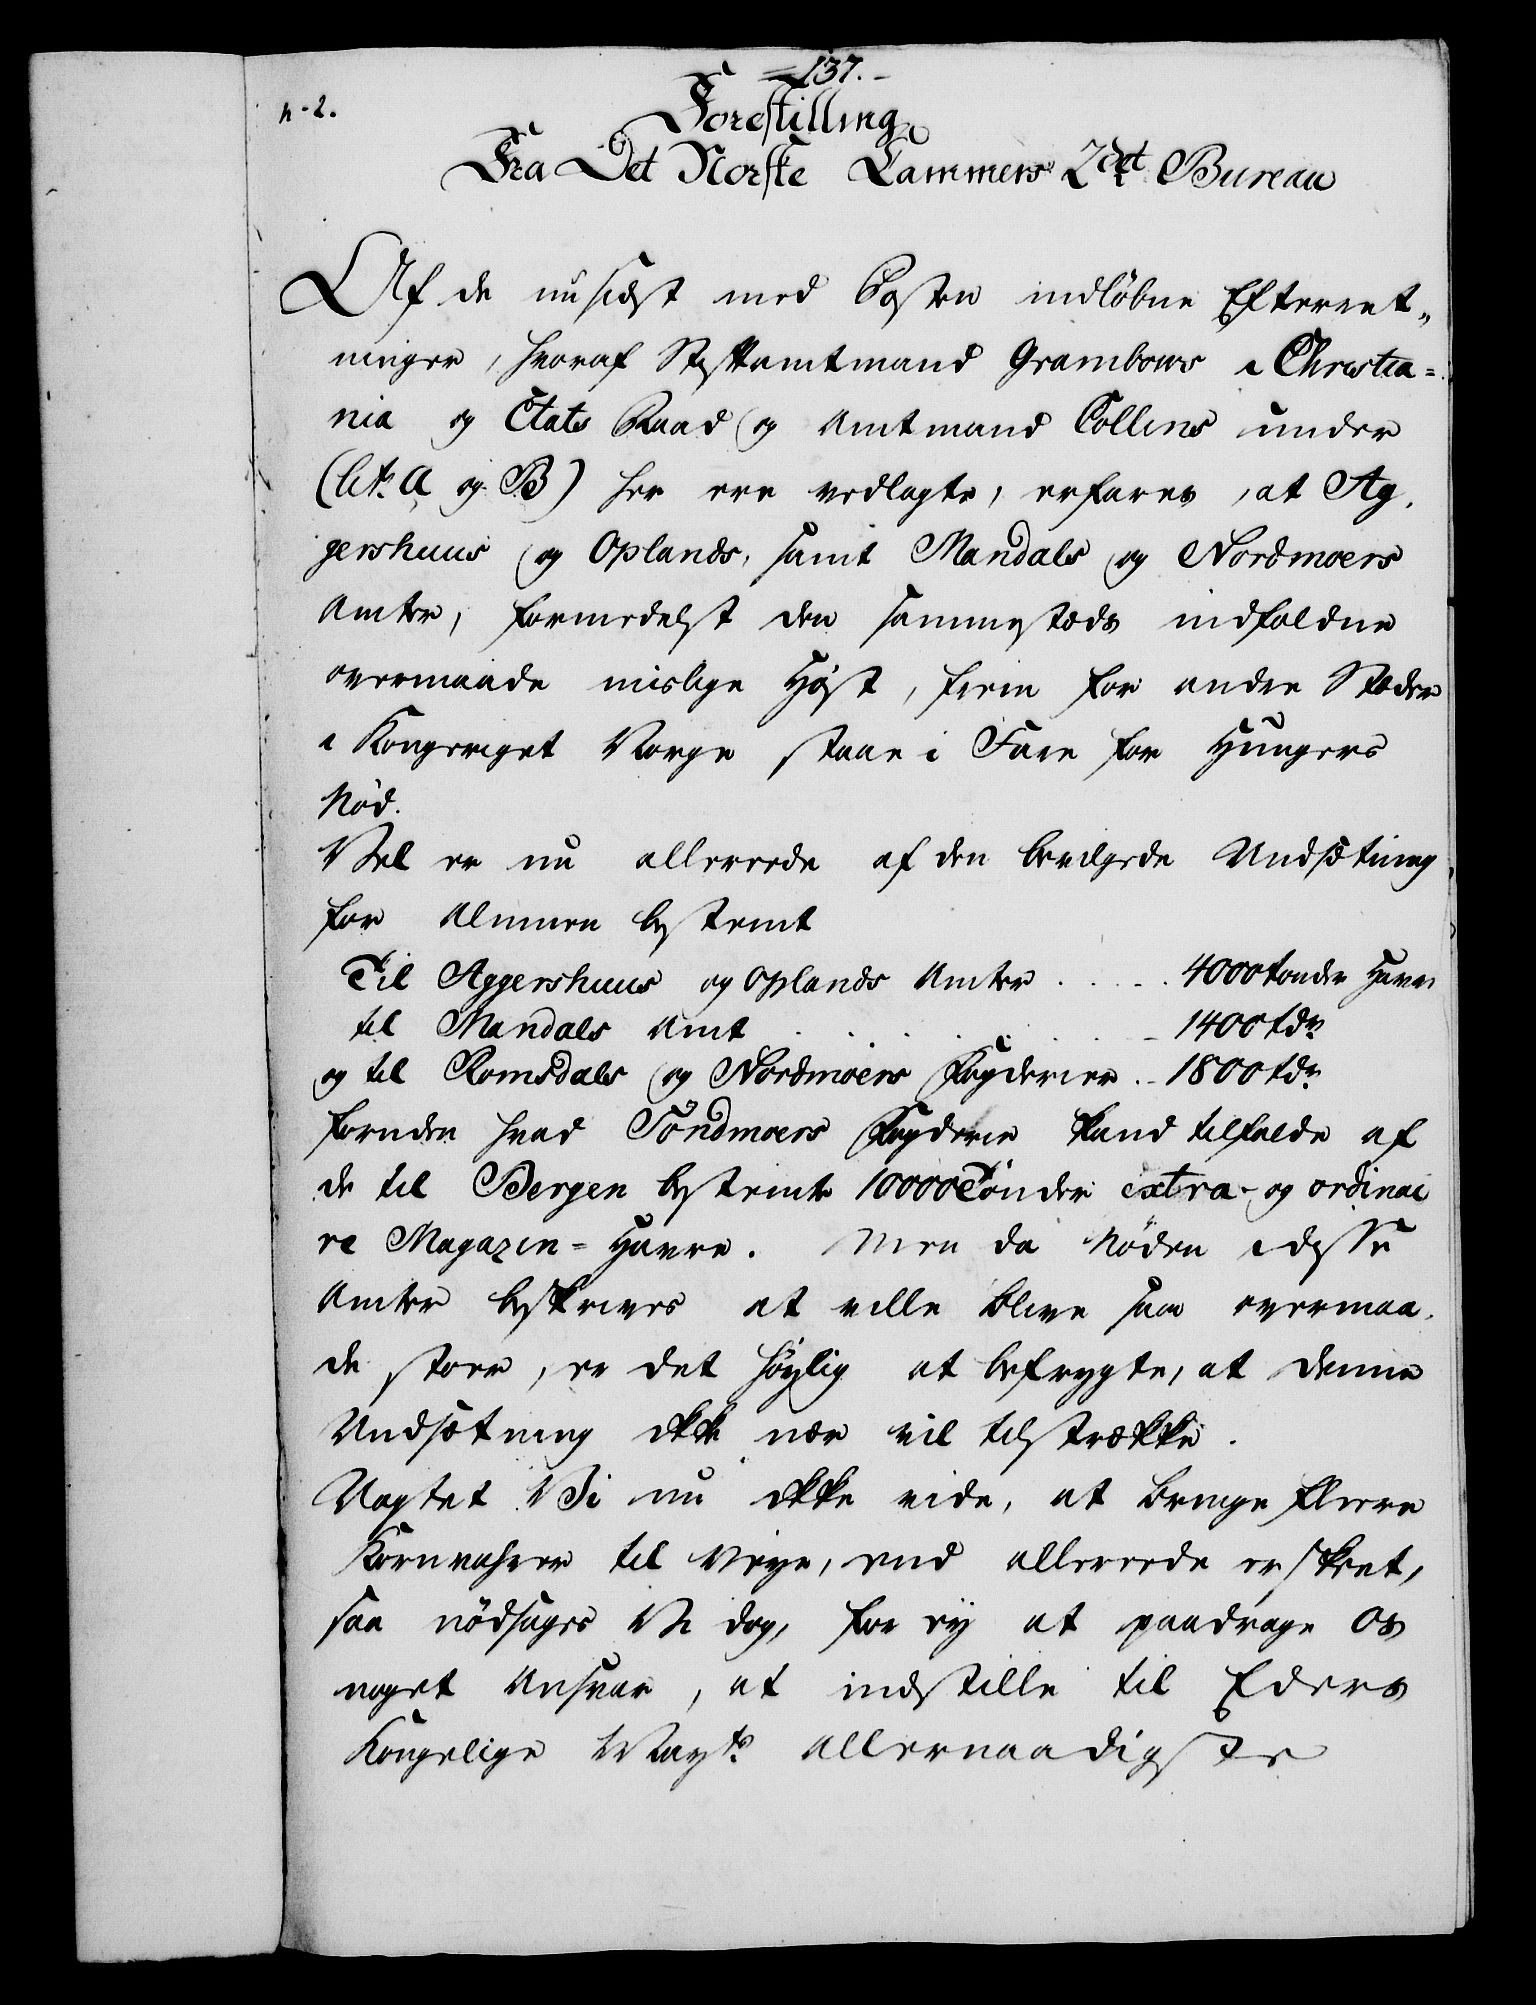 =137.-
n-2.
Forestilling
Fra Det Norske Cammers 2det Bureau
Af de nu sidst med Posten indløbne Efterret„
ninger, hvoraf Stiftamtmand Grambows i Christia=
nia og Etats Raad og Amtmand Collins under
(lit. A og B) her ere vedlagte, erfares, at Ag„
gershuus og Oplands, samt Mandals og Nordmoers
Amter, formedelst den sammestæds indfaldne
overmaade mislige Høst, frem for andre Stæder
i Kongeriget Norge staae i Fare for Hungers
Nød.
Vel er nu allereede af den bevilgede Undsætning
for Almuen bestemt
Til Aggershuus og Oplands Amter . . . . . 4000 tønder Havre
til Mandals Amt . . . . . . 1400 tdr
og til Romsdals og Nordmoers Fogderier .. 1800 tdr
foruden hvad Söndmoers Fogderie kand tilfalde af
de til Bergen bestemte 10000 Tönder extra- og ordinai
re Magazin=Havre. Men da Nøden i disse
Amter beskrives at ville blive saa overmaa„
de stor, er det høylig at befrygte, at denne
Undsætning ikke nær vil tilstrække.
Uagtet Vi nu ikke vide, at bringe fleere
Kornvahrer til Veye, end allereede er skeet,
saa nødsages Vi dog, for ey at paadrage os
noget Ansvar, at indstille til Eders
Kongelige Mayts allernaadigste